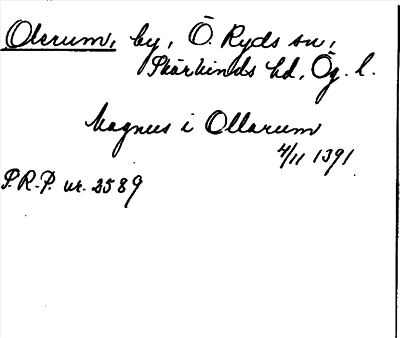 Olerum, by, Ö. Ryds sn,
Skärkinds hd, Ög. l.
Magnus i Ollarum
4/11 1391
P.R.P. nr. 2589